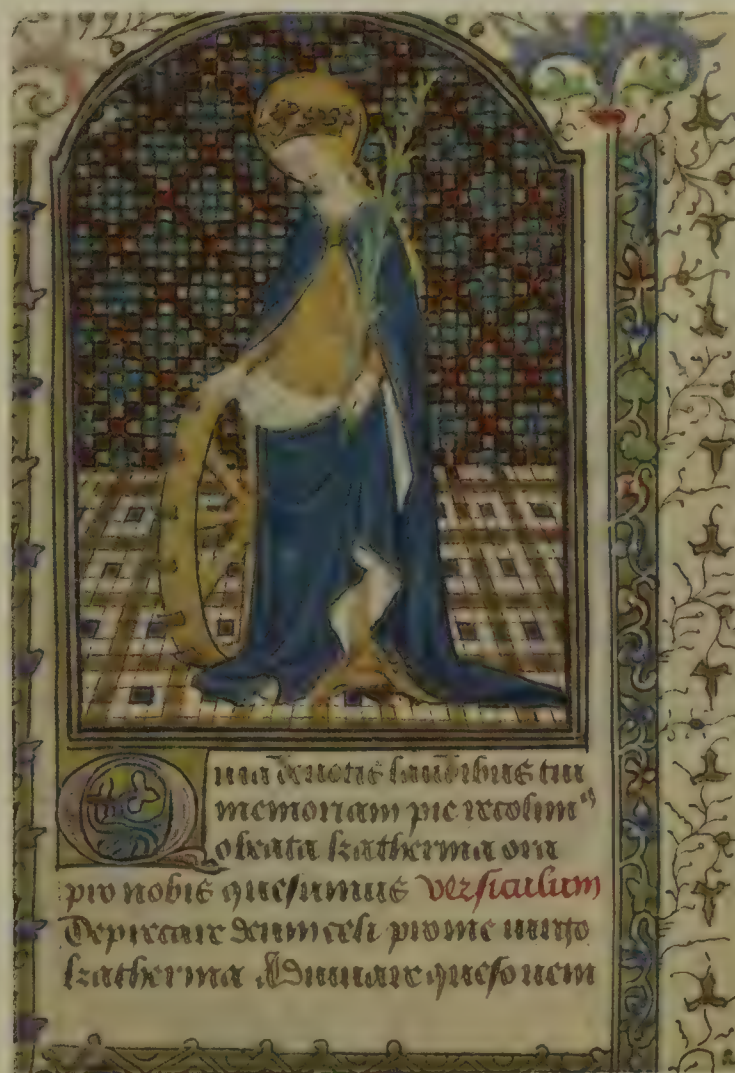 Quia deuotis laudibus tui
memoriam pie recolimꝰ
obeata katherina ora
pro nobis quesumus versiculum
Deprecare deum celi pro me uirgo
katherina Adiuuare queso ueni